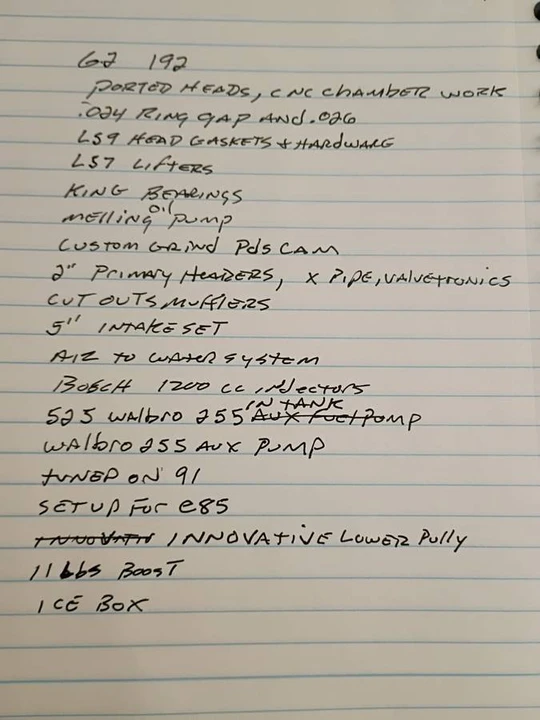 62 192
PORTED HEADS, CNC CHAMBER WORK
.024 RING GAP AND .026
LS9 HEAD GASKETS & HARDWARE
LS7 LIFTERS
KING BEARINGS
MELLING OIL PUMP
CUSTOM GRIND PdS CAM
2" PRIMARY HEADERS, X PIPE, VALVETRONICS
CUT OUTS MUFFLERS
5" INTAKE SET
AIR TO WATER SYSTEM
BOSCH 1200 CC INJECTORS
525 WALBRO 255 IN TANK AUX FUEL PUMP
WALBRO 255 AUX PUMP
TUNED ON 91
SETUP FOR e85
INNOVATIVE LOWER PULLY
11 LbS BOOST
ICE BOX